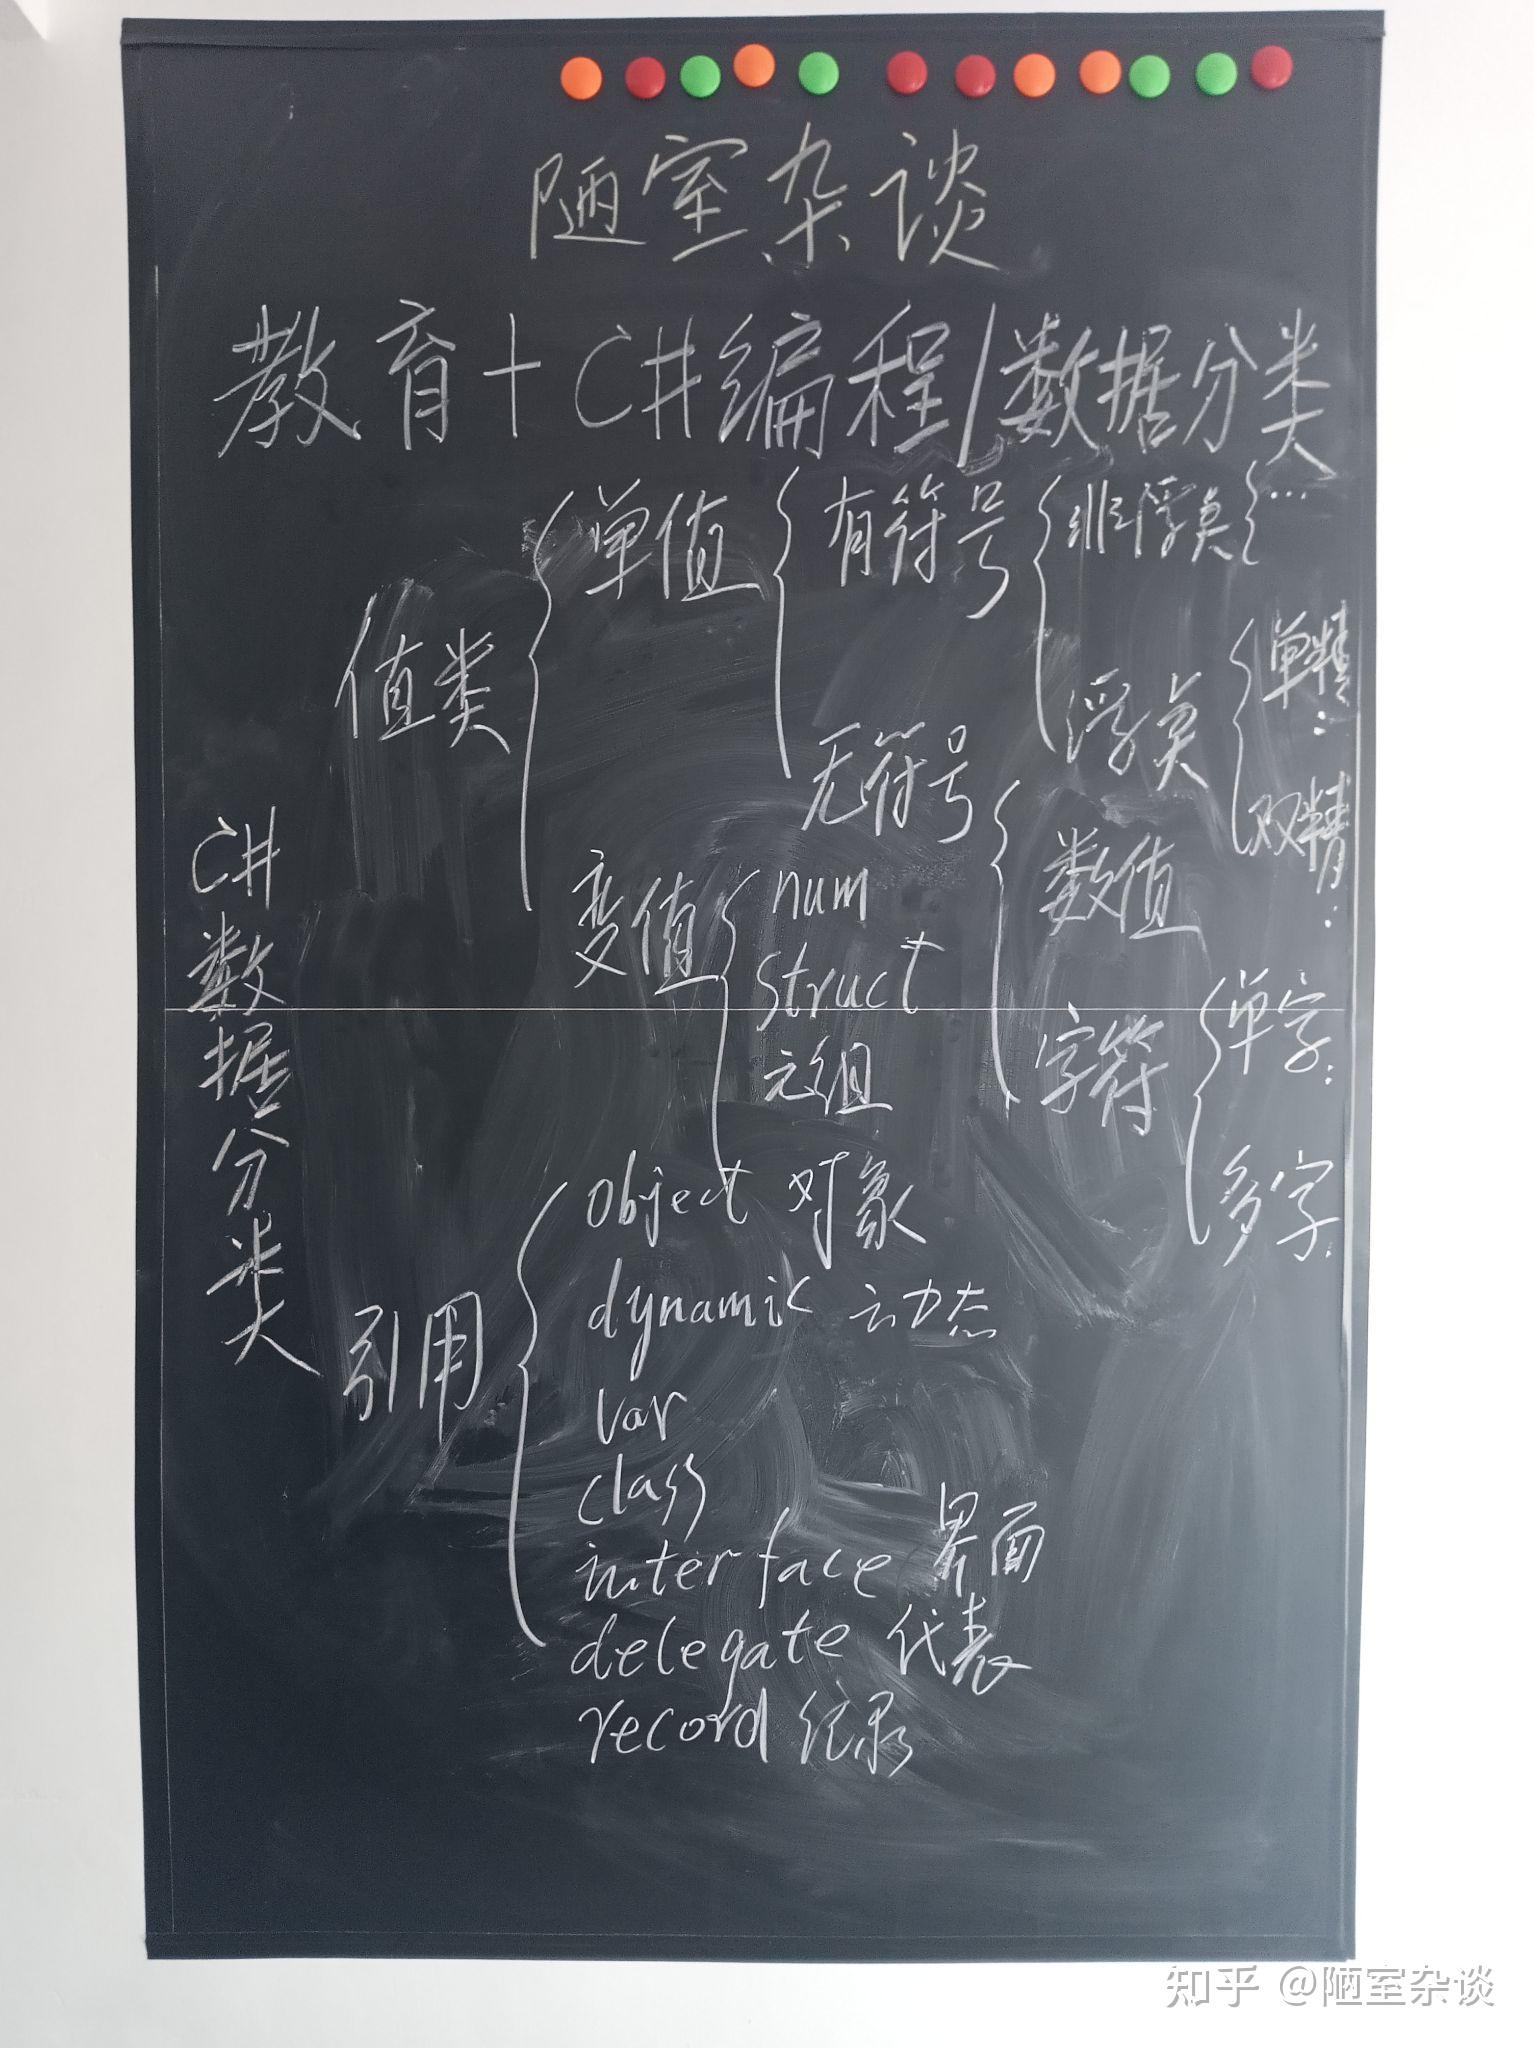 陋室杂谈
教育+C#编程/数据分类
C#数据分类
值类
单值
有符号
非浮点
...
浮点
单精:
双精:
无符号
数值
字符
单字:
多字:
变值
num
struct
元组
引用
object 对象
dynamic 动态
var
class
interface 界面
delegate 代表
record 纪录
知乎 @陋室杂谈